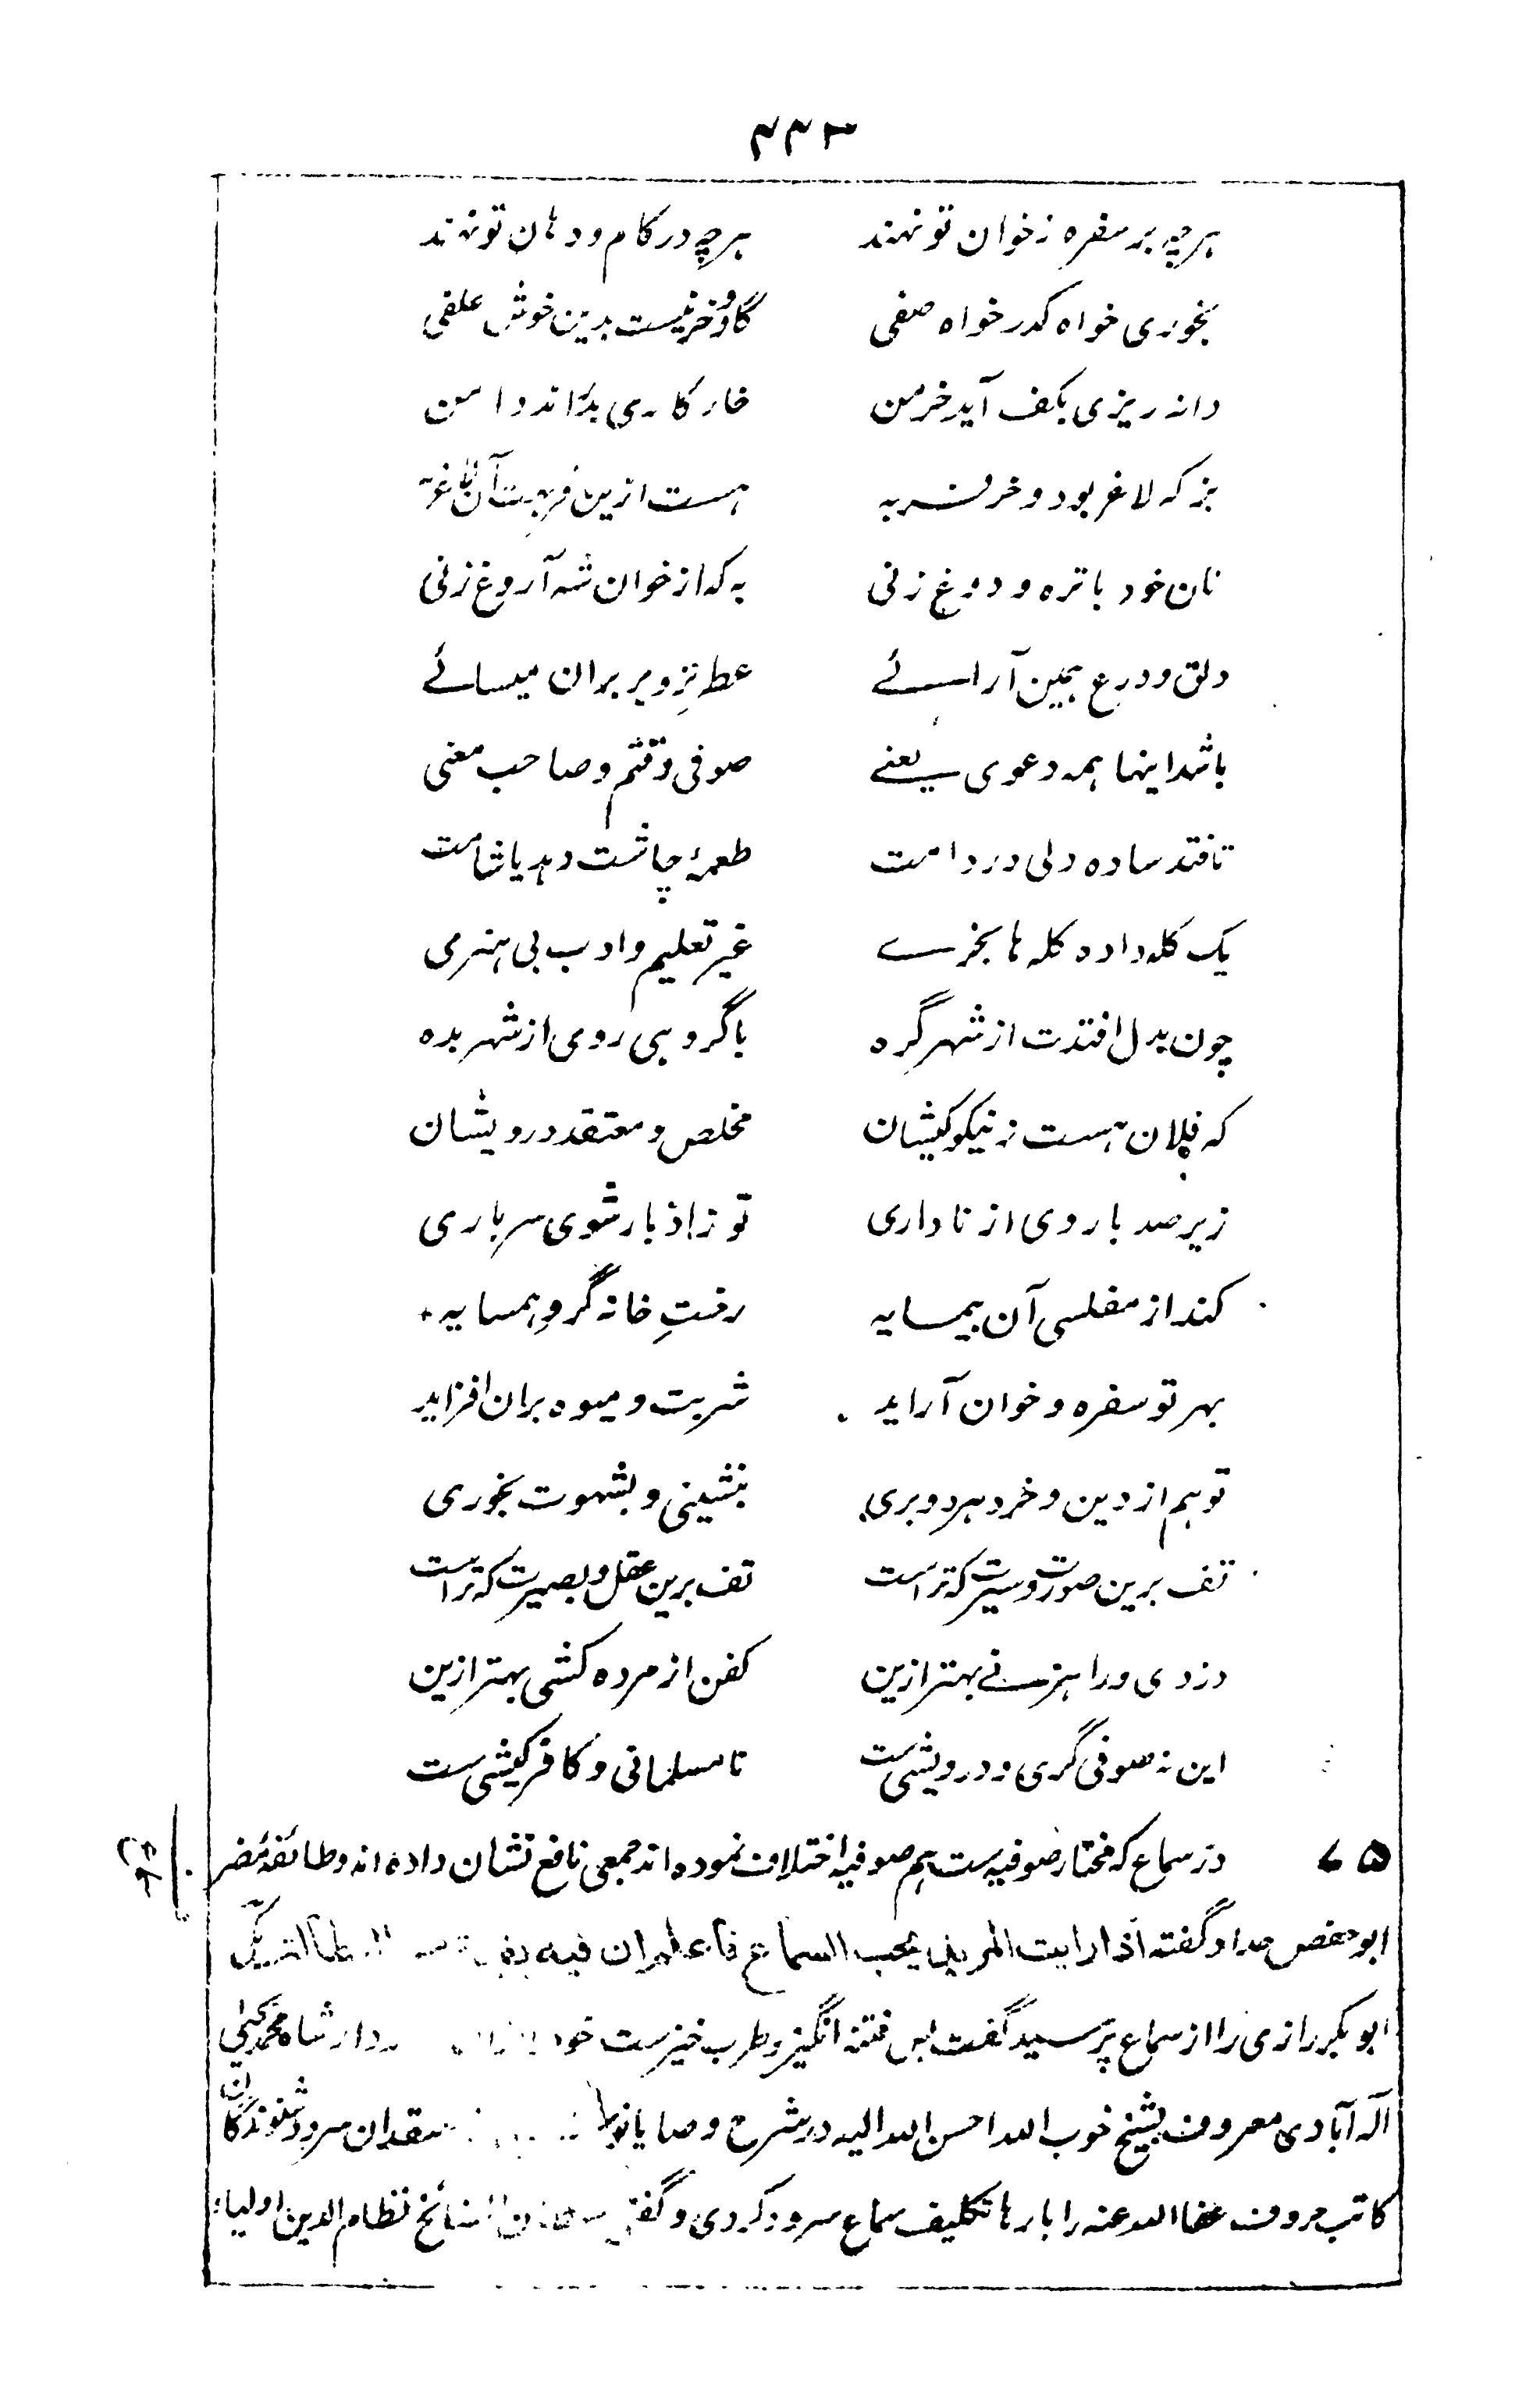 ۴۴۳
هرچه بر سفره زخوان تو نهند هرچه در کام و دهان تو نهند
بخوری خواه کدر خواه صفی گاو و خر نیست بدین خوش علفی
دانه ریزی بکف آید خرمن خار کاری بدراند دامن
بز که لاغر بود و خر فربه هست ازین فربهت آن لاغر به
نان خود با تره و دوغ زنی به که از خوان شه آروغ زنی
دلق و درع بهین آرائے عطر تزویر بران میسائے
باشد اینها همه دعوی یعنے صوفی وقتم و صاحب معنی
تا فتد ساده دلی در دامت طعمهٔ چاشت دهد یا شامت
یک کله داده کله ها بخرے غیر تعلیم و ادب بی هنری
چون بدل افتدت از شهر گره با گروهی روی از شهر بده
که فلان هست ز نیکو کیشان مخلص و معتقد درویشان
زیر صد بار وی از ناداری تو زاذبار شوی سرباری
کند از مفلسی آن بیمایه رختِ خانه گروِ همسایه
بهر تو سفره و خوان آراید شربت و میوه بران افزاید
تو هم از دین و خرد هر دو بری بنشینی و بشهوت بخوری
تف برین صورت و سیرت که تراست تف برین عقل و بصیرت که تراست
دزدی و راهزنے بهتر ازین کفن از مرده کشی بهتر ازین
این نه صوفی گری و درویشی ست نامسلمانی و کافر کیشی ست
۷۵ در سماع که مختار صوفیه ست هم صوفیه اختلاف نموده اند جمعی نافع نشان داده اند و طائفهٔ مضر
ابو حفص حداد گفته اذا رایت المرید یحب السماع فاعلم ان فیه بقیة
ابو بکر رازی را از سماع پرسید گفت بس فتنه انگیز و طرب خیزست شاه محمد یحیی
آله آبادی معروف بشیخ خوب الله احسن الله الیه در شرح وصایا سرود شنوندگان
کاتب حروف عفا الله عنه را بارها تکلیف سماع سرود کردی و گفتی سلطان المشائخ نظام الدین اولیاء